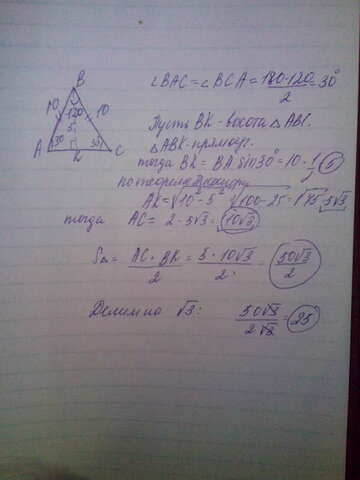 B
10 120 10
5
A 30 K 30 C
∠BAC = ∠BCA = (180-120)/2 = 30°
Пусть BK - высота △ABC.
△ABK - прямоуг.
тогда BK = BA sin30° = 10 · 1/2 = 5
по теореме Пифагора
AK = √10²-5² √100-25 = √75 5√3
тогда AC = 2·5√3 = 10√3
S△ = (AC · BK)/2 = (5 · 10√3)/2 = 50√3/2
Делим на √3: 50√3/2√3 = 25